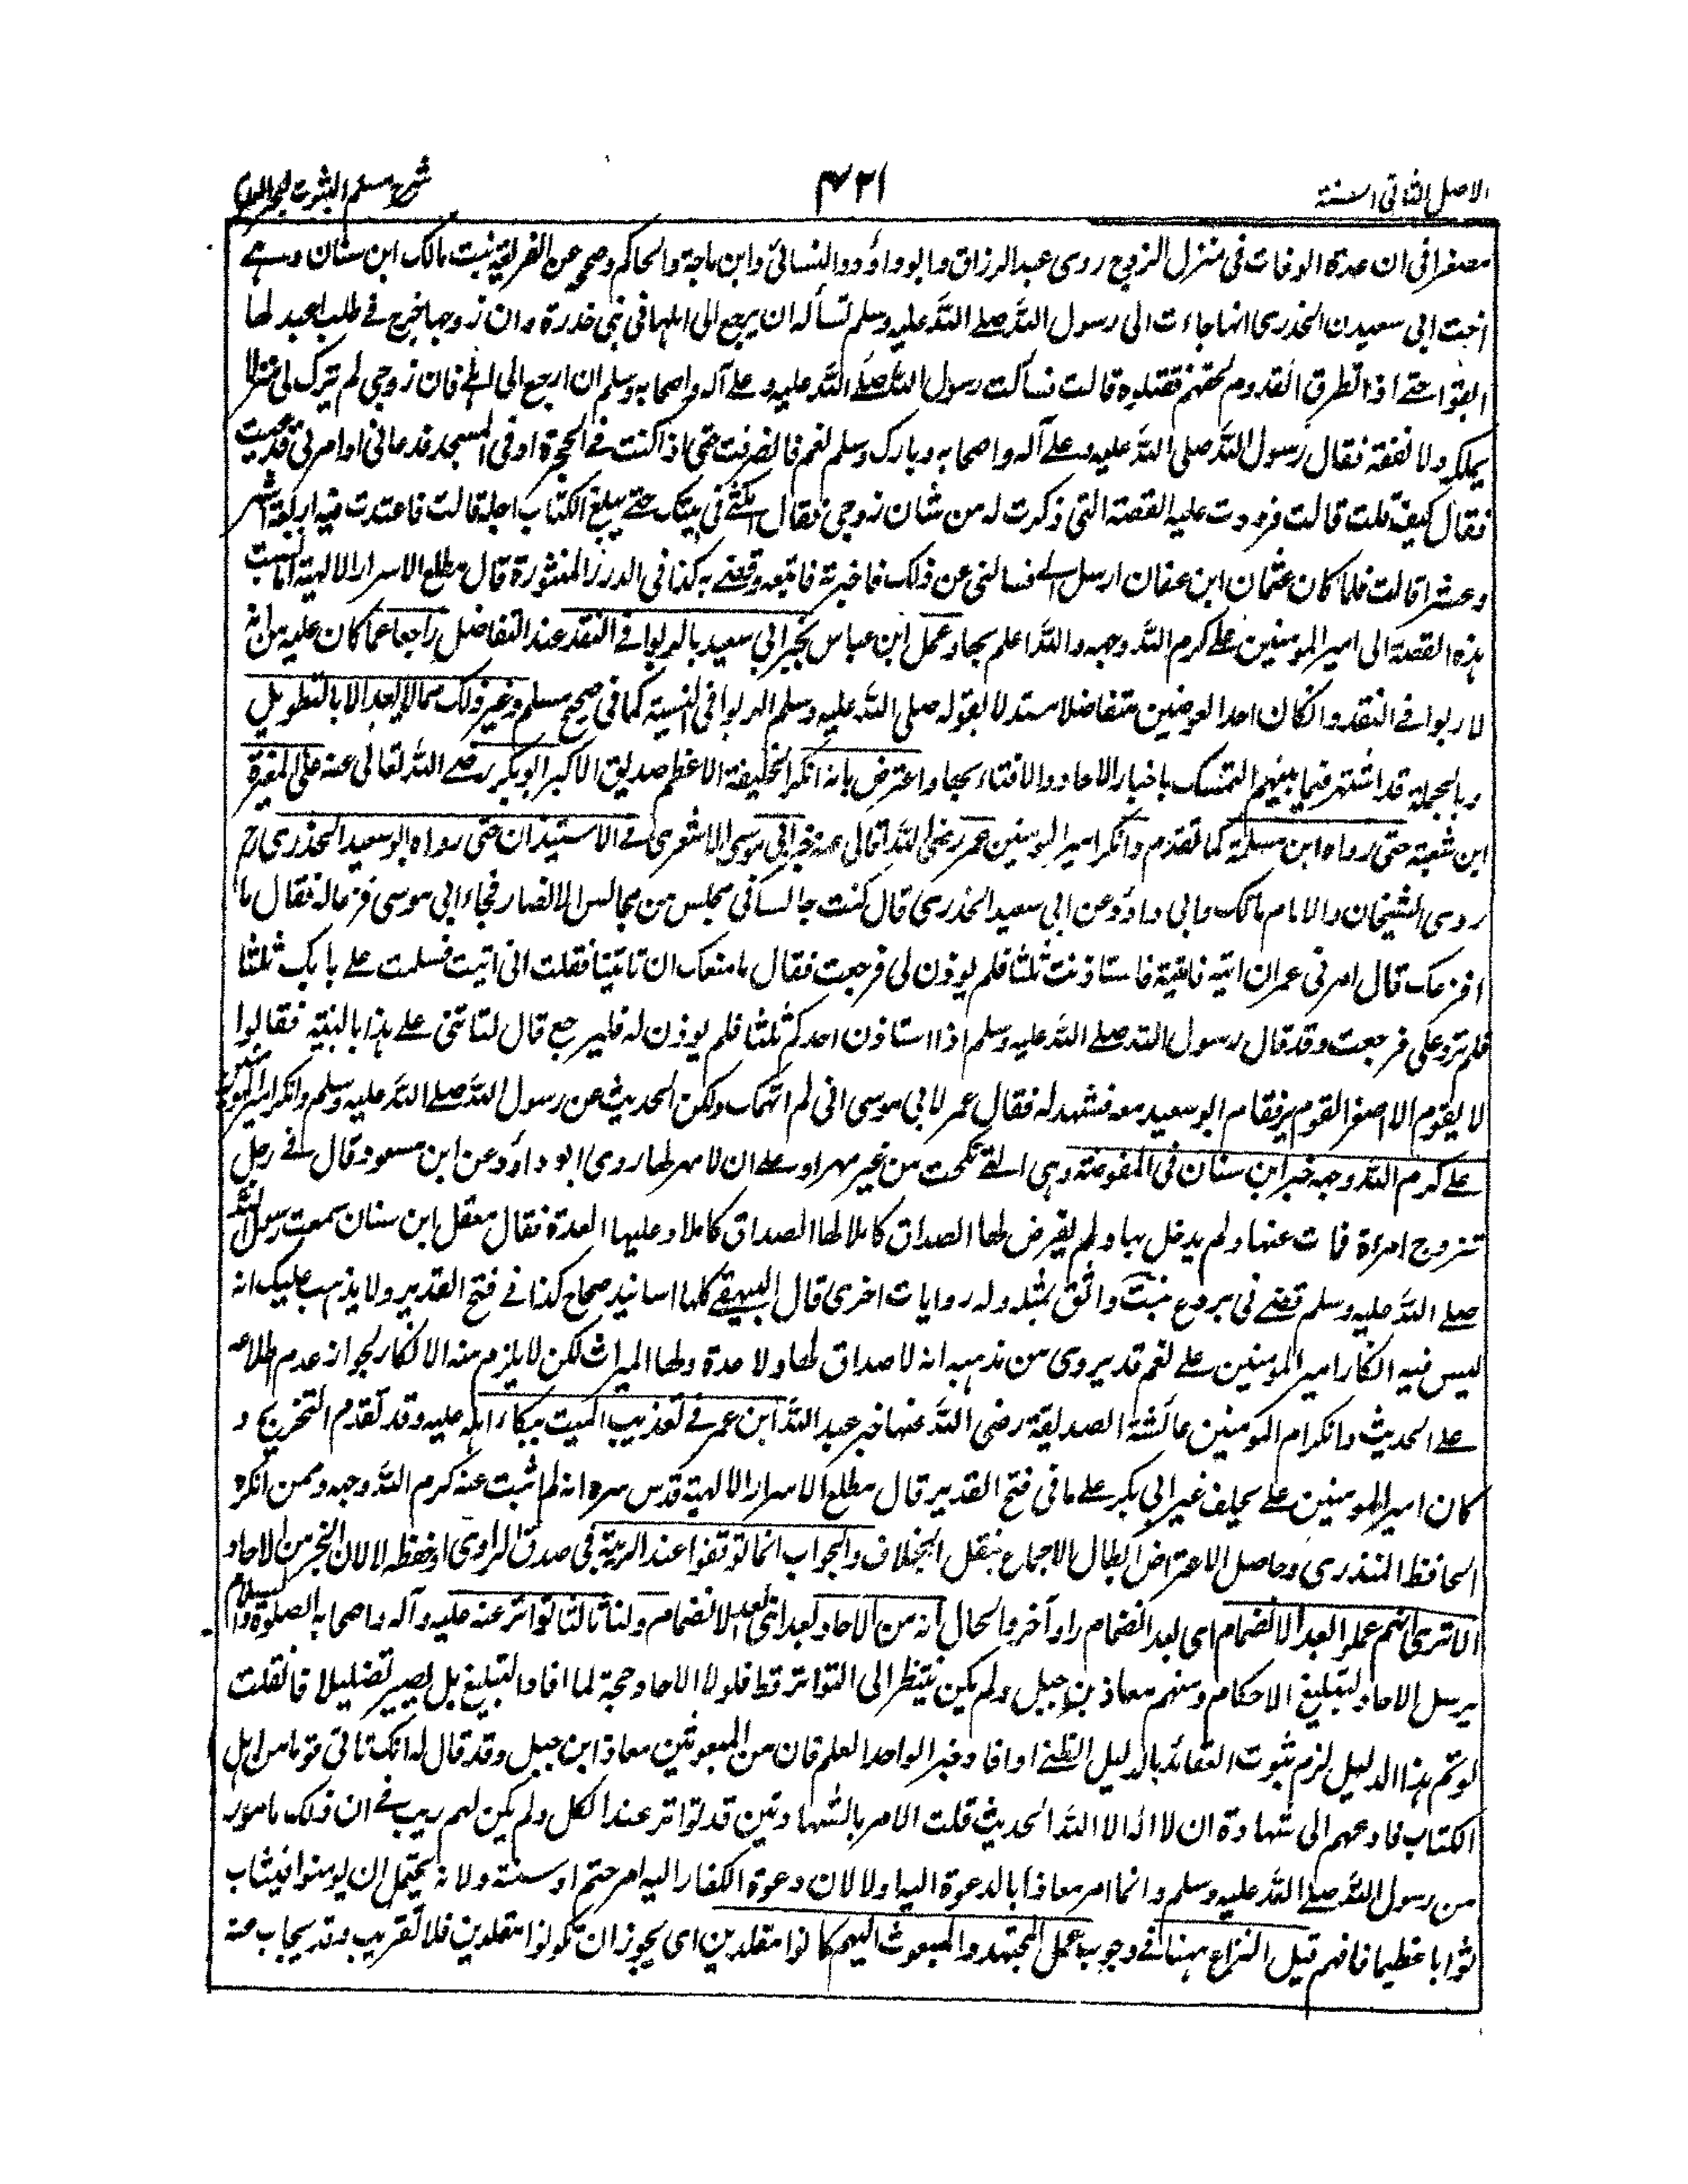 الاصل الثانی السنة
۴۲۱
شرح مسلم الثبوت لبحر العلوم
مصغرا فی ان عدة الوفات فی منزل الزوج روی عبد الرزاق وابو داؤد والنسائی وابن ماجة والحاکم وصححه عن الفریعة بنت مالک ابن سنان وہی
اخت ابی سعیدن الخدری انها جاءت الی رسول اللہ صلے اللہ علیہ وسلم تسأله ان یرجع الی اہلها فی بنی خدرة وان زوجها خرج فے طلب اعبد لها
ابقوا حتے اذا تطرق القدوم لحقهم فقتلوه قالت فسألت رسول اللہ صلے اللہ علیہ وعلے آلہ واصحابہ وسلم ان ارجع الی اہلے فان زوجی لم یترک لی منزلا
یملکہ ولا نفقة فقال رسول اللہ صلی اللہ علیہ وعلے آلہ واصحابہ وبارک وسلم نعم فانصرفت حتی اذا کنت فے الحجرة او فی المسجد فدعانی او امر بی فدعیت
فقال کیف قلت قالت فرددت علیہ القصة التی ذکرت لہ من شان زوجی فقال امکثے فی بیتک حتے یبلغ الکتاب اجلہ قالت فاعتدت فیہ اربعة اشهر
وعشرا قالت فلما کان عثمان ابن عفان ارسل الے فسالنی عن ذلک فاخبرتہ فاتبعہ وقضے بہ کذا فی الدرر المنثورة قال مطلع الاسرار الالہیة انا نسبت
ہذه القصة الی امیر المومنین علے کرم اللہ وجہہ واللہ اعلم بها وعمل ابن عباس بخبر ابی سعید بالربوا فے النقد عند التفاضل راجعا عما کان علیہ من انہ
لا ربوا فے النقد وانکان احد العوضین متفاضلا مستدلا بقولہ صلی اللہ علیہ وسلم الربوا فی النسیة کما فی صحیح مسلم وغیر ذلک مما لا یعد الا بالتطویل
وبالجملة قد اشتهر فیما بینهم التمسک باخبار الاحاد والافتاء بها واعترض بانہ انکر الخلیفة الاعظم صدیق الاکبر ابوبکر رضے اللہ تعالی عنہ علی المغیرة
ابن شعبة حتی رواه ابن مسلمة کما تقدم وانکر امیر المومنین عمر رضی اللہ تعالی عنہ خبر ابی موسی الاشعری فے الاستیذان حتی رواه ابو سعید الخدری رح
روی الشیخان والامام مالک وابی داؤد عن ابی سعید الخدری قال کنت جالسا فی مجلس من مجالس الانصار فجاء ابی موسی فزعا لہ فقال ما
افزعک قال امرنی عمر ان اتیہ فاتیتہ فاستاذنت ثلثا فلم یوذن لی فرجعت فقال ما منعک ان تاتینا فقلت انی اتیت فسلمت علے بابک ثلثا
فلم تردو علی فرجعت وقد قال رسول اللہ صلے اللہ علیہ وسلم اذا استاذن احدکم ثلثا فلم یوذن لہ فلیرجع قال لتاتنی علے ہذا بالبینة فقالوا
لا یقوم الا اصغر القوم فقام ابو سعید معہ فشهد لہ فقال عمر لابی موسی انی لم اتهمک ولکن الحدیث عن رسول اللہ صلے اللہ علیہ وسلم وانکر امیر المومنین
علے کرم اللہ وجہہ خبر ابن سنان فی المفوضة وہی التے نکحت من غیر مہر او علے ان لا مہر لها روی ابو داؤد عن ابن مسعود قال فے رجل
تزوج امرءة فمات عنها ولم یدخل بها ولم یفرض لها الصداق کاملا لها الصداق کاملا وعلیها العدة فقال معقل ابن سنان سمعت رسول اللہ
صلے اللہ علیہ وسلم قضے فی بروع بنت واثق بمثلہ ولہ روایات اخری قال البیہقے کلها اسانید صحاح کذا فے فتح القدیر ولا یذہب علیک انہ
لیس فیہ انکار امیر المومنین علے نعم قد یروی من مذہبہ انہ لا صداق لها ولا عدة ولها المیراث لکن لا یلزم منہ الانکار لجواز عدم اطلاعہ
علے الحدیث وانکر ام المومنین عائشة الصدیقة رضی اللہ عنها خبر عبد اللہ ابن عمر فے تعذیب المیت ببکاء اہلہ علیہ وقد تقدم التخریج و
کان امیر المومنین علے یحلف غیر ابی بکر علے ما فی فتح القدیر قال مطلع الاسرار الالہیة قدس سرہ انہ لم یثبت عنہ کرم اللہ وجہہ وممن انکرہ
الحافظ المنذری وحاصل الاعتراض ابطال الاجماع بنقل الخلاف والجواب انما توقفوا عند الریبة فی صدق الراوی او حفظہ لا لان الخبر من الاحاد
الا تری انهم عملوا بعد الانضمام ای بعد انضمام راو آخر والحال انہ من الاحاد بعد ای بعد الانضمام ولنا ثالثا تواتر عنہ علیہ وآلہ واصحابہ الصلوة والسلام
یرسل الاحاد لتبلیغ الاحکام ومنهم معاذ بن جبل ولم یکن ینتظر الی التواتر قط فلولا الاحاد حجة لما افاد التبلیغ بل یصیر تضلیلا فانقلت
لو تم ہذا الدلیل لزم ثبوت العقائد بالدلیل الظنے او افاد خبر الواحد العلم فان من المبعوثین معاذ ابن جبل وقد قال لہ انک تاتی قوما من اہل
الکتاب فادعهم الی شهادة ان لا الہ الا اللہ الحدیث قلت الامر بالشهادتین قد تواتر عند الکل ولم یکن لهم ریب فے ان ذلک مامور
من رسول اللہ صلے اللہ علیہ وسلم وانما امر معاذا بالدعوة الیہ اولا لان دعوة الکفار الیہ امر حتم او سنة ولانہ یحتمل ان یومنوا فیثاب
ثوابا عظیما فافهم قیل النزاع ہهنا فے وجوب عمل المجتهد والمبعوث الیهم کانوا مقلدین ای یجوز ان تکونوا مقلدین فلا تقریب وقد یجاب عنہ